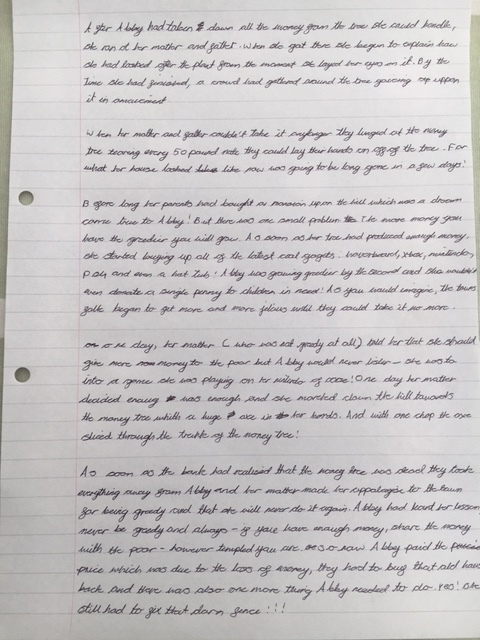 After Abbey had taken down all the money from the tree she could handle,
she ran at her mother and father. When she got there she begun to explain how
she had looked after the plant from the moment she layed her eyes on it. By the
time she had finished, a crowd had gathered around the tree gawing up uppon
it in amazement
When her mother and father couldn't take it anylonger they lunged at the money
tree tearing every 50 pound note they could lay their hands on off of the tree. For
what her house looked like now was going to be long gone in a few days!
Before long her parents had bought a mansion upon the hill which was a dream
come true to Abbey! But there was one small problem The more money you
have the greedier you will grow. As soon as her tree had produced enough money,
she started buying up all of the latest cool gagets. hoverboard, xbox, nintendo,
ps4 and even a hot Tub! Abbey was growing greedier by the second and she wouldn't
even donate a single penny to children in need! As you would imagine, the towns
folk began to get more and more jelous until they could take it no more.
one day, her mother (who was not greedy at all) told her that she should
give more money to the poor but Abbey would never listen - she was to
into a game she was playing on her nintendo! One day her mother
decided enoug was enough and she marched down the hill towards
the money tree whith a huge axe in her hands. And with one chop the axe
sliced through the trunk of the money tree!
As soon as the bank had realised that the money tree was dead they took
everything away from Abbey and her mother made her appologise to the town
for being greedy and that she will never do it again. Abbey had learnt her lesson,
never be greedy and always - if you have enough money, share the money
with the poor - however tempted you are. Now Abbey paid the
price which was due to the loss of money, they had to buy that old house
back and there was also one more thing Abbey needed to do. yes! She
still had to fix that darn fence!!!